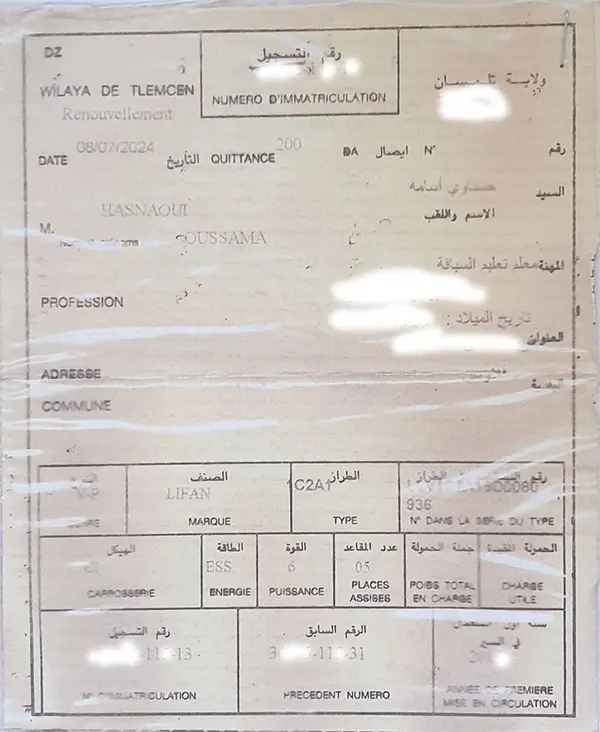 DZ
رقم التسجيل
ولاية تلمسان
WILAYA DE TLEMCEN
NUMERO D'IMMATRICULATION
Renouvellement
08/07/2024
200
DATE التأريخ QUITTANCE DA ايصال N° رقم
السيد
حسناوي أسامة
الاسم واللقب
HASNAOUI
M.
OUSSAMA
المهنة معلم تعليم السياقة
PROFESSION
تاريخ الميلاد :
العنوان
ADRESSE
COMMUNE
الصنف
الطراز
LIFAN
C2A1
936
MARQUE
TYPE
N° DANS LA SERIE DU TYPE
الهيكل
الطاقة
القوة
عدد المقاعد
جملة الحمولة
الحمولة المفيدة
CI
ESS.
6
05
CARROSSERIE
ENERGIE
PUISSANCE
PLACES ASSISES
POIDS TOTAL EN CHARGE
CHARGE UTILE
رقم التسجيل
الرقم السابق
سنة أول استعمال
في السير
-113-13
-31
N° D'IMMATRICULATION
PRECEDENT NUMERO
ANNEE DE PREMIERE
MISE EN CIRCULATION